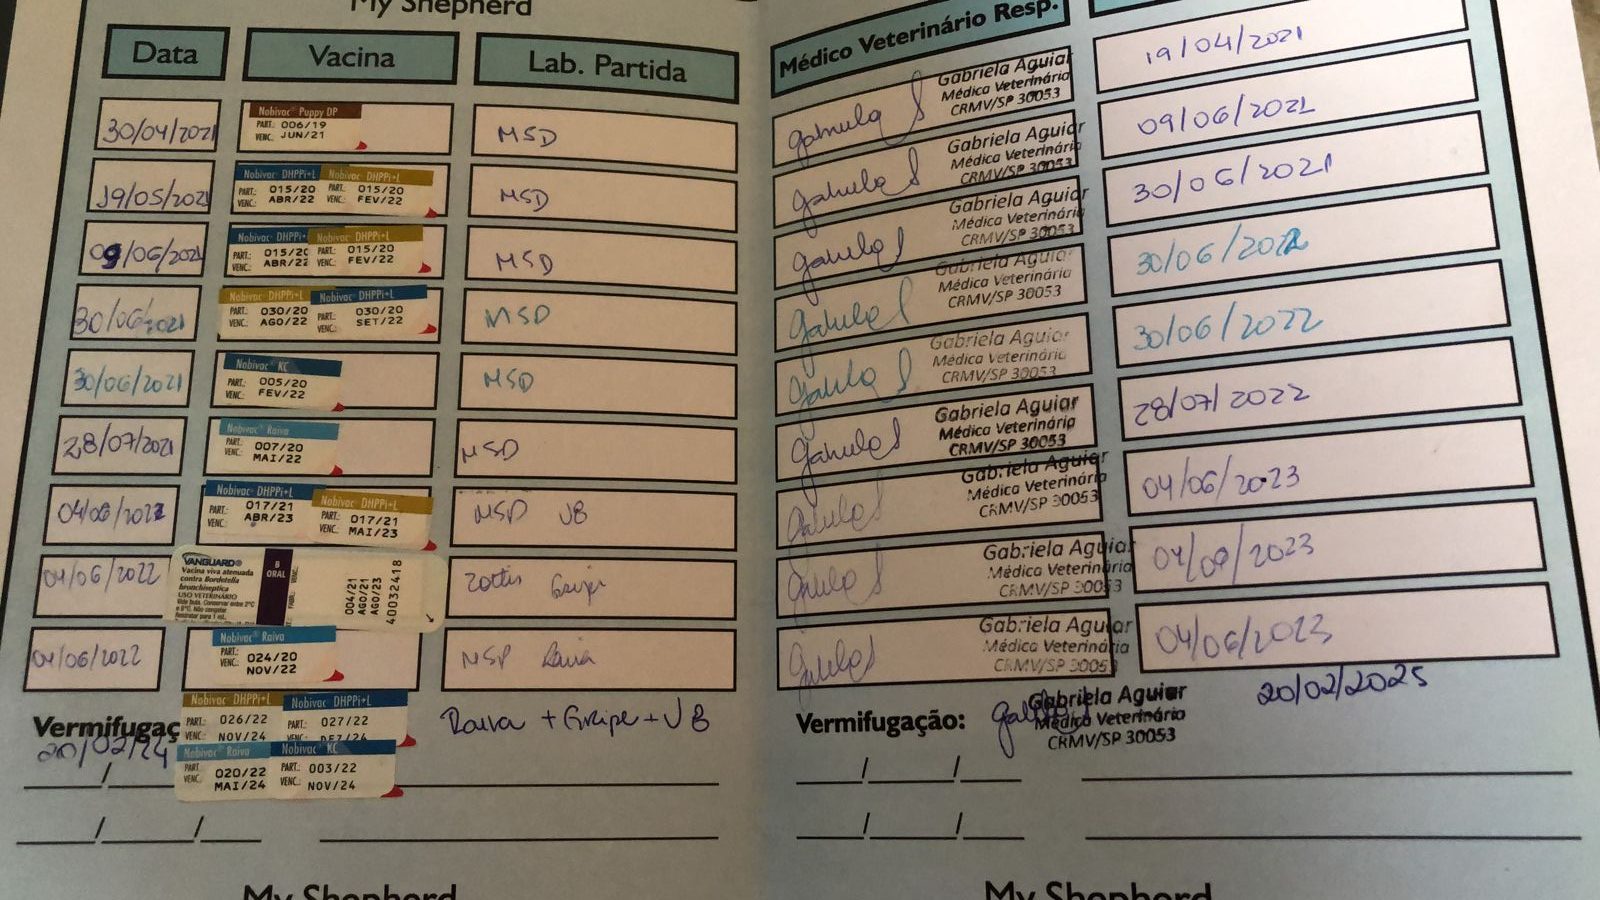 My Shepherd
Data Vacina Lab. Partida Médico Veterinário Resp.
30/04/2021 Nobivac® Puppy DP PART.: 006/19 VENC. JUN/21 MSD Gabriela Aguiar Médica Veterinária CRMV/SP 30053 19/04/2021
19/05/2021 Nobivac DHPPi+L PART.: 015/20 VENC.: ABR/22 Nobivac DHPPi+L PART.: 015/20 VENC.: FEV/22 MSD Gabriela Aguiar Médica Veterinária CRMV/SP 30053 09/06/2021
09/06/2021 Nobivac DHPPi+ PART.: 015/20 VENC.: ABR/22 Nobivac DHPPi+L PART.: 015/20 VENC.: FEV/22 MSD Gabriela Aguiar Médica Veterinária CRMV/SP 30053 30/06/2021
30/06/2021 Nobivac DHPPi+L PART. 030/20 VENC. AGO/22 Nobivac DHPPi+L PART.: 030/20 VENC.: SET/22 MSD Gabriela Aguiar Médica Veterinária CRMV/SP 30053 30/06/2022
30/06/2021 Nobivac® KC PART.: 005/20 VENC.: FEV/22 MSD Gabriela Aguiar Médica Veterinária CRMV/SP 30053 30/06/2022
28/07/2021 Nobivac® Raiva PART. 007/20 VENC.: MAI/22 MSD Gabriela Aguiar Médica Veterinária CRMV/SP 30053 28/07/2022
04/06/2022 Nobivac DHPPi+L PART.: 017/21 VENC.: ABR/23 Nobivac DHPPi+L PART.: 017/21 VENC.: MAI/23 MSD V8 Gabriela Aguiar Médica Veterinária CRMV/SP 30053 04/06/2023
04/06/2022 VANGUARD® B ORAL Vacina viva atenuada contra Bordetella bronchiseptica USO VETERINÁRIO 004/21 AGO/21 AGO/23 40032418 Zoetis Gripe Gabriela Aguiar Médica Veterinária CRMV/SP 30053 04/06/2023
04/06/2022 Nobivac® Raiva PART.: 024/20 VENC.: NOV/22 MSD Raiva Gabriela Aguiar Médica Veterinária CRMV/SP 30053 04/06/2023
Vermifugaç Nobivac DHPPi+L PART.: 026/22 VENC.: NOV/24 Nobivac DHPPi+L PART.: 027/22 VENC.: DEZ/24 Raiva + Gripe + V8 Vermifugação: Gabriela Aguiar Médica Veterinária CRMV/SP 30053 20/02/2025
20/02/24 Nobivac® Raiva PART.: 020/22 VENC. MAI/24 Nobivac® KC PART.: 003/22 VENC.: NOV/24
My Shepherd My Shepherd